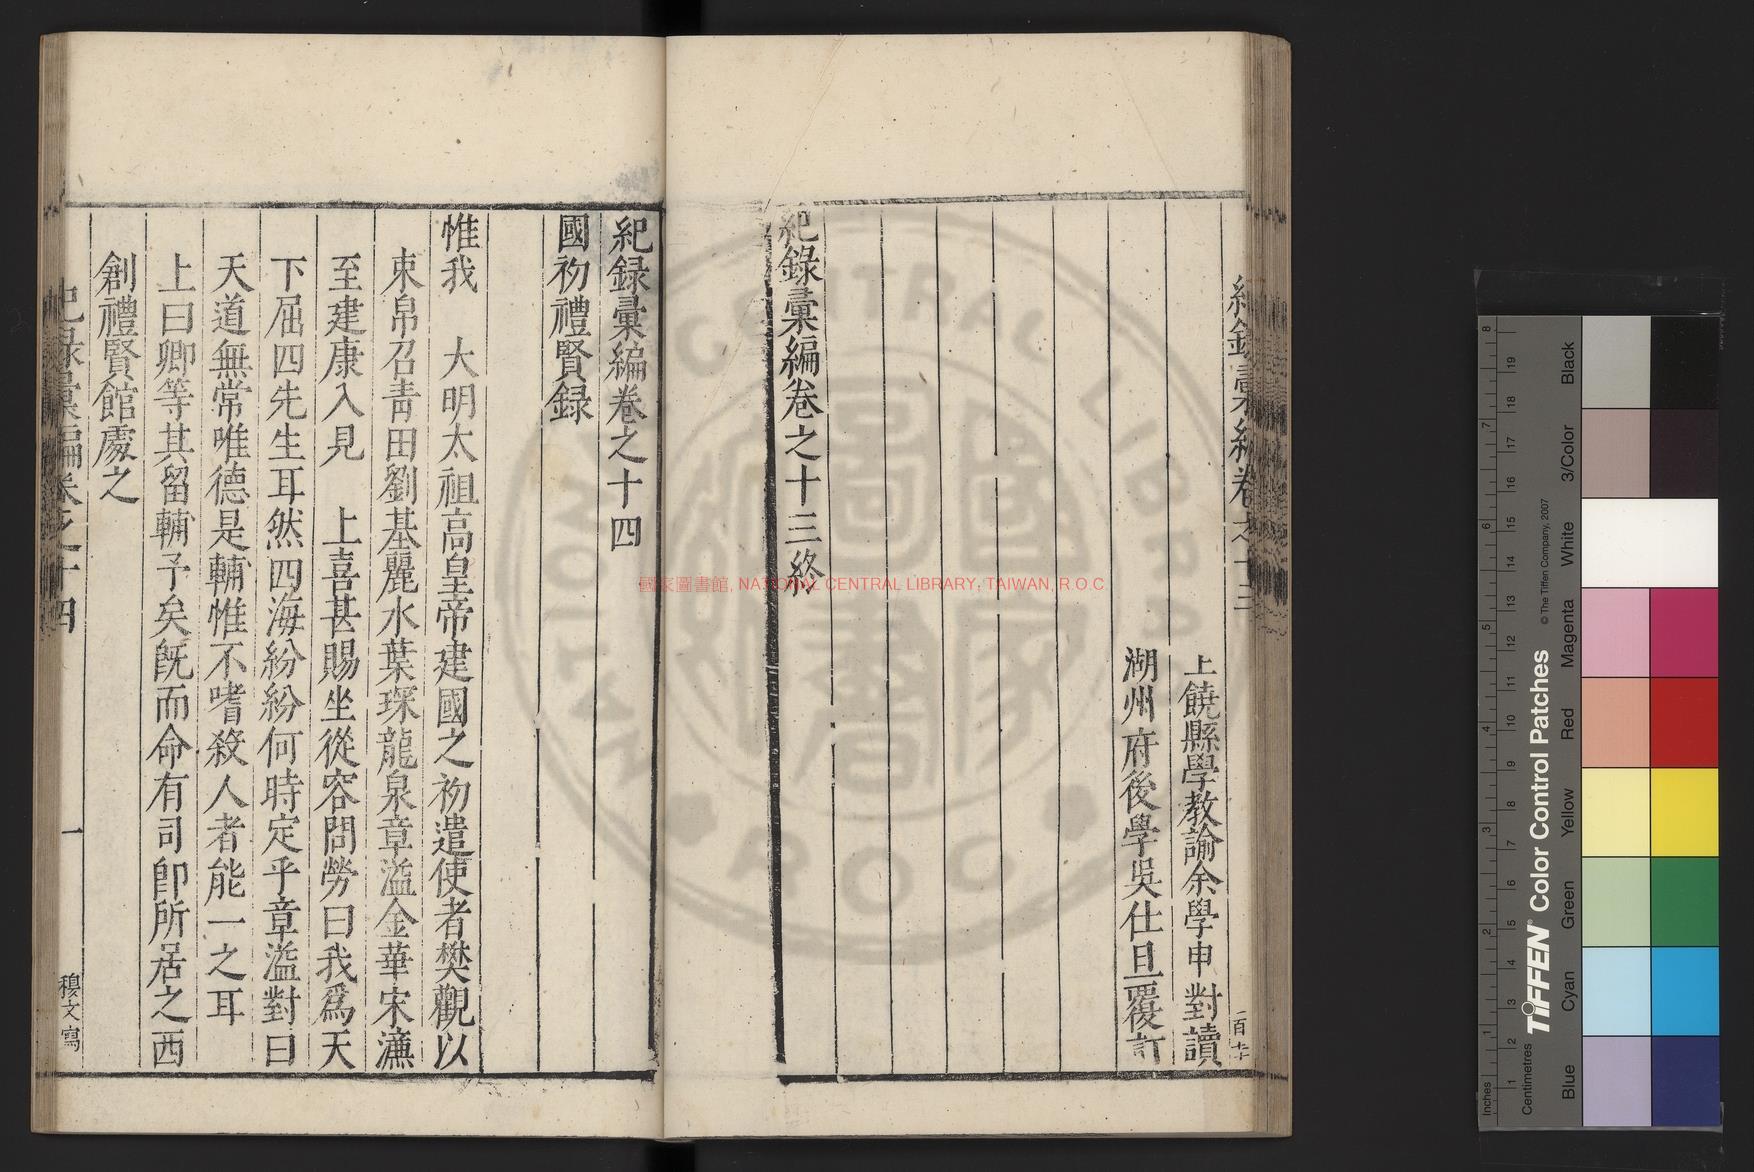 上饒縣學教諭余學申對讀
湖州府後學吳仕旦覆訂
紀錄彙編卷之十三終
紀録彙編卷之十四
國初禮賢録
惟我　大明太祖高皇帝建國之初遣使者樊觀以
束帛召青田劉基麗水葉琛龍泉章溢金華宋濂
至建康入見　上喜甚賜坐從容問勞曰我爲天
下屈四先生耳然四海紛紛何時定乎章溢對曰
天道無常唯德是輔惟不嗜殺人者能一之耳
上曰卿等其留輔予矣旣而命有司卽所居之西
創禮賢館處之
紀録彙編卷之十四
一
穆文寫
國家圖書館, NATIONAL CENTRAL LIBRARY, TAIWAN, R.O.C
NATIONAL CENTRAL LIBRARY
R.O.C
國家圖書館
TIFFEN® Color Control Patches
© The Tiffen Company, 2007
Inches
1 2 3 4 5 6 7 8
Centimetres
1 2 3 4 5 6 7 8 9 10 11 12 13 14 15 16 17 18 19
Blue
Cyan
Green
Yellow
Red
Magenta
White
3/Color
Black